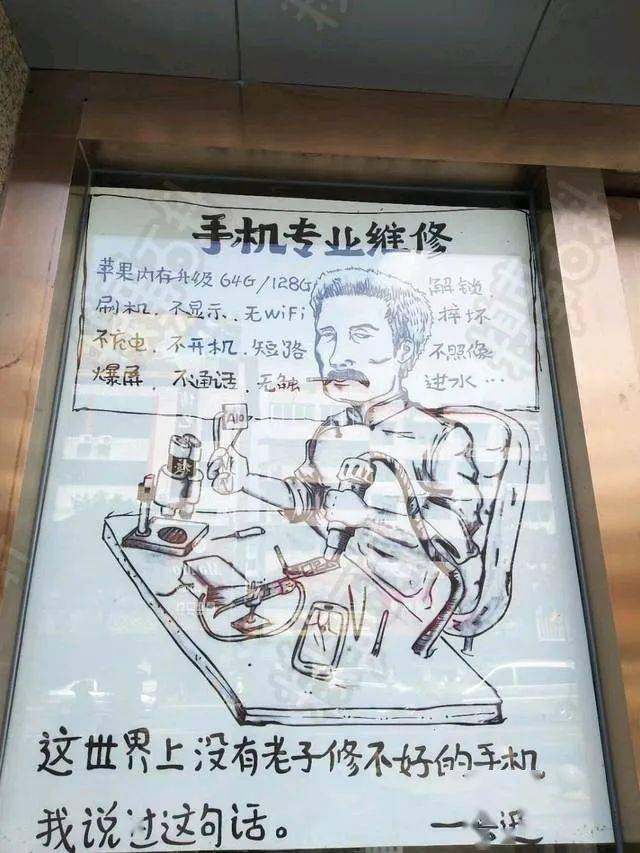 手机专业维修
苹果内存升级 64G/128G 解锁.
刷机. 不显示. 无WiFi . 摔坏
不充电. 不开机. 短路 不照像
爆屏. 不通话. 无触 进水…
A10
这世界上没有老子修不好的手机,
我说过这句话。